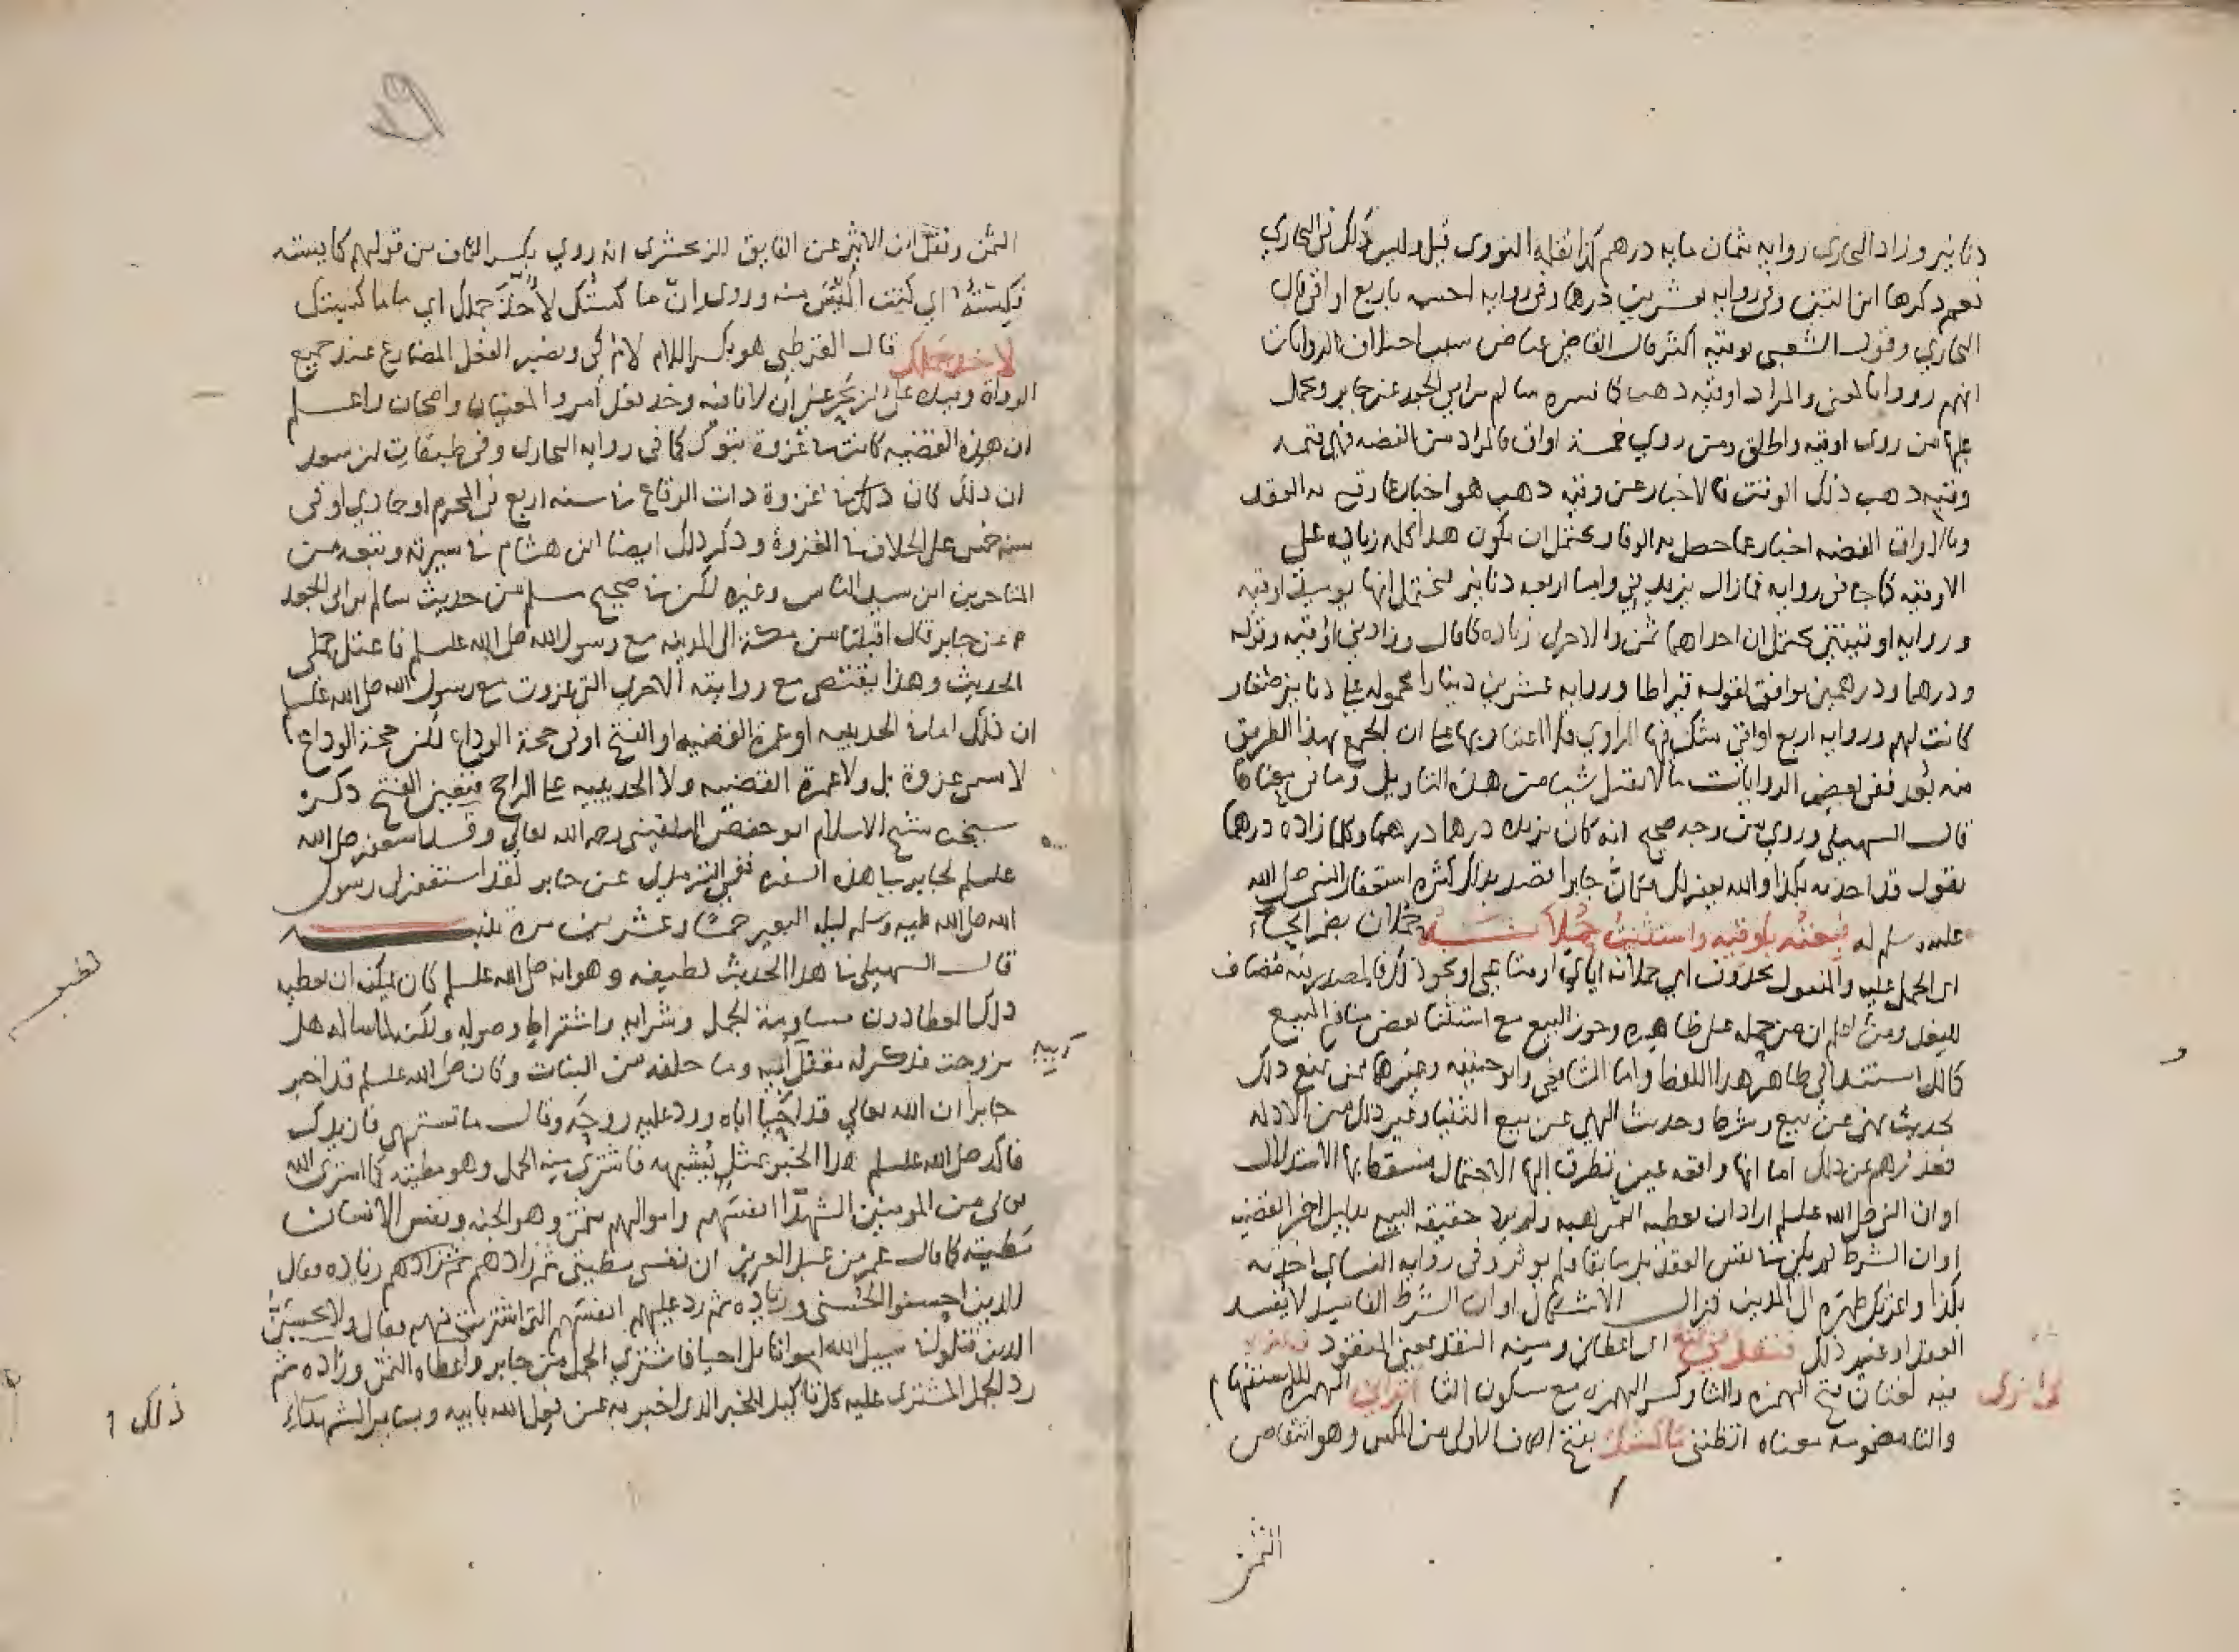 دنانير وزاد البخاري رواية ثمان ماية درهم كذا نقله النووي قيل وليس ذلك في البخاري
نعم ذكرها ابن التين وفي رواية بعشرين درهما وفي رواية احسبه باربع اواقي قال
البخاري وقول الشعبي بوقية اكثر قال القاضي عياض سبب اختلاف الروايات
انهم رووا بالمعنى والمراد اوقية ذهب كما فسره سالم بن ابي الجعد عن جابر ويحمل
عليها من روى اوقية واطلق ومن روى خمسة اواق فالمراد من الفضة فهي قيمة
وقية ذهب ذلك الوقت فالاخبار عن وقية ذهب هو اخبار عما وقع به العقد
وبالاواق الفضة اخبار عما حصل به الوفا ويحتمل ان يكون هذا كله زيادة على
الاوقية كما جا في رواية فما زال يزيدني واما اربعة دنانير فيحتمل انها يوميذ اوقية
ورواية اوقيتين يحتمل ان احداهما ثمن والاخرى زيادة كما قال وزادني اوقية وقوله
ودرهما ودرهمين موافق لقوله قيراطا ورواية عشرين دينارا محمولة على دنانير صغار
كانت لهم ورواية اربع اواقي شك فيها الراوي فلا اعتبار بها على ان الجمع بهذا الطريق
فيه بعد ففي بعض الروايات ما لا يقبل شيا من هذا التاويل وما في معناها
قال السهيلي وروي من وجه صحيح انه كان يزيده درهما درهما وكلما زاده درهما
يقول قد اخذته بكذا والله يغفر لك فكان جابرا قصد بذلك كثرة استغفار النبي صلى الله
عليه وسلم له فبعته باوقية واستثنيت حملانه حملان بضم الحاء
اي الحمل عليه والمفعول محذوف اي حملانه اياي او متاعي او نحو ذلك فالمصدر منه مضاف
للفاعل ومن العلم ان من حمله على ظاهره وجوز البيع مع استثنا بعض منافع المبيع
كمالك استند الى ظاهر هذا اللفظ واما الشافعي وابو حنيفة وغيرهما ممن منع ذلك
لحديث نهى عن بيع وشرط وحديث النهي عن بيع الثنيا وغير ذلك من الادلة
فعذرهم عن ذلك اما انها واقعة عين تطرق اليها الاحتمال فسقط بها الاستدلال
او ان النبي صلى الله عليه وسلم اراد ان يعطيه الثمن هبة ولم يرد حقيقة البيع بدليل اخر القضية
او ان الشرط لم يكن في نفس العقد بل سابقا ولم يوثر وفي رواية النساي اخذته
بكذا واعرتك ظهره الى المدينة فزال الاشكال او ان الشرط الفاسد لا يفسد
العقد او غير ذلك فنقدني ثمنه اي اعطاني ومنه النقد بمعنى المنقود
فيه لغتان فتح الهمزة والثا وكسر الهمزة مع سكون الثا اتراني الهمزة للاستفهام
والتا مضمومة معناه اتظنني ماكستك بفتح الكاف الاولى من المكس وهو انتقاص
الثمن
الثمن ونقل ابن الاثير عن الفايق للزمخشري انه روي بكسر الكاف من قولهم كايسته
فكسته اي كنت اكيس منه وروي ان ما كستك لاخذ جملك اي ما ما كستك
لاخذ جملك قال القرطبي هو بكسر اللام لام كي ونصب الفعل المضارع عند جميع
الرواة
ان هذه القضية كانت في غزوة تبوك كما في رواية البخاري وفي طبقات ابن سعد
ان ذلك كان في غزوة ذات الرقاع في سنة اربع في المحرم او جمادى او في
سنة خمس على الخلاف في الغزوة وذكر ذلك ايضا ابن هشام في سيرته وتبعه من
المتاخرين ابن سيد الناس وغيره لكن في صحيح مسلم من حديث سالم بن ابي الجعد
عن جابر قال اقبلنا من مكة الى المدينة مع رسول الله صلى الله عليه وسلم فاعتل جملي
الحديث وهذا يقتضي مع روايته الاخرى التي غزوت مع رسول الله صلى الله عليه وسلم
ان ذلك اما في الحديبية او عمرة القضية او الفتح او في حجة الوداع لكن حجة الوداع
لا تسمى غزوة بل ولا عمرة القضية ولا الحديبية على الراجح فتعين الفتح ذكره
شيخنا شيخ الاسلام ابو حفص البلقيني رحمه الله تعالى وقد استغفر صلى الله
عليه وسلم لجابر في هذه السفرة ففي الترمذي عن جابر لقد استغفر لي رسول
الله صلى الله عليه وسلم ليلة البعير خمسا وعشرين مرة تنبيه
قال السهيلي في هذا الحديث لطيفة وهو انه صلى الله عليه وسلم كان يمكنه ان يعطيه
ذلك العطا دون مساومة لجمل وشرايه واشتراط وصوله ولكن لما ساله هل
تزوجت فذكر له مقتل ابيه وما خلفه من البنات وكان صلى الله عليه وسلم قد اخبر
جابرا ان الله تعالى قد احيا اباه ورد عليه روحه وقال ما تشتهي فازيدك
فاكد صلى الله عليه وسلم هذا الخبر بمثل يشبهه فاشترى منه الجمل وهو مطيته كما اشترى الله
تعالى من المومنين الشهدا انفسهم واموالهم بثمن وهو الجنة ونفس الانسان
مطيته كما قال عمر بن عبد العزيز ان نفسي مطيتي ثم زادهم زيادة فقال
للذين احسنوا الحسنى وزيادة ثم رد عليهم انفسهم التي اشترى منهم فقال ولا تحسبن
الذين قتلوا في سبيل الله امواتا بل احيا فاشترى الجمل من جابر واعطاه الثمن وزاده ثم
رد الجمل المشترى عليه كل ذا تاكيد للخبر الذي اخبر به عن فعل الله بابيه وساير الشهداء
ذلك